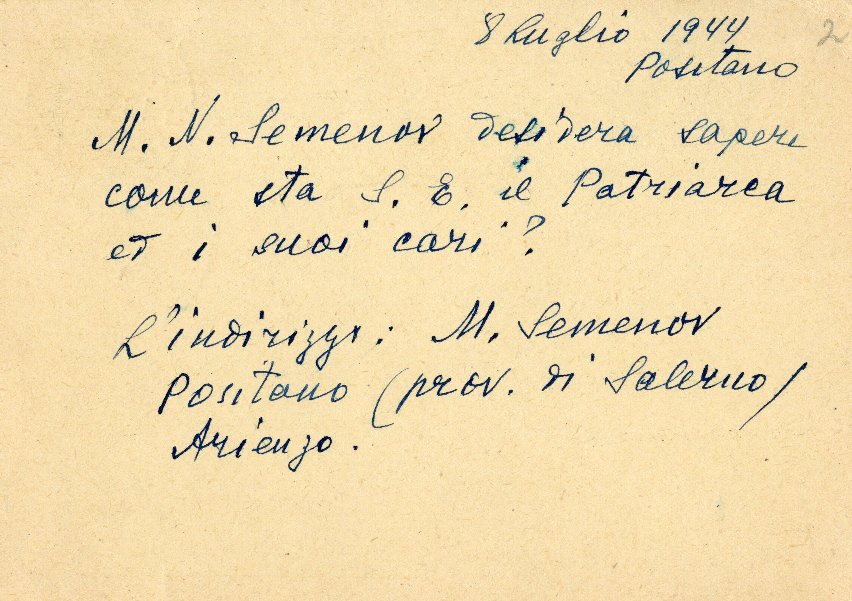 8 Luglio 1944
2
Positano
M. N. Semenov desidera sapere
come sta S. E. il Patriarca
ed i suoi cari?
L'indirizzo: M. Semenov
Positano (prov. di Salerno)
Arienzo.